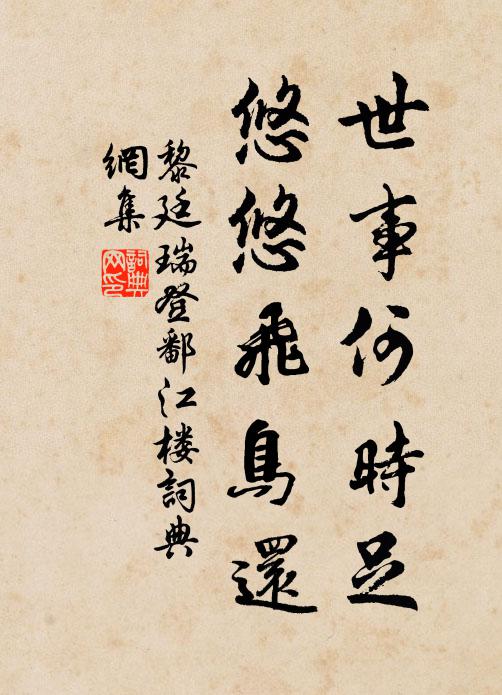 世事何時足
悠悠飛鳥還
黎廷瑞登鄱江楼詞典
網集
詞典
网印